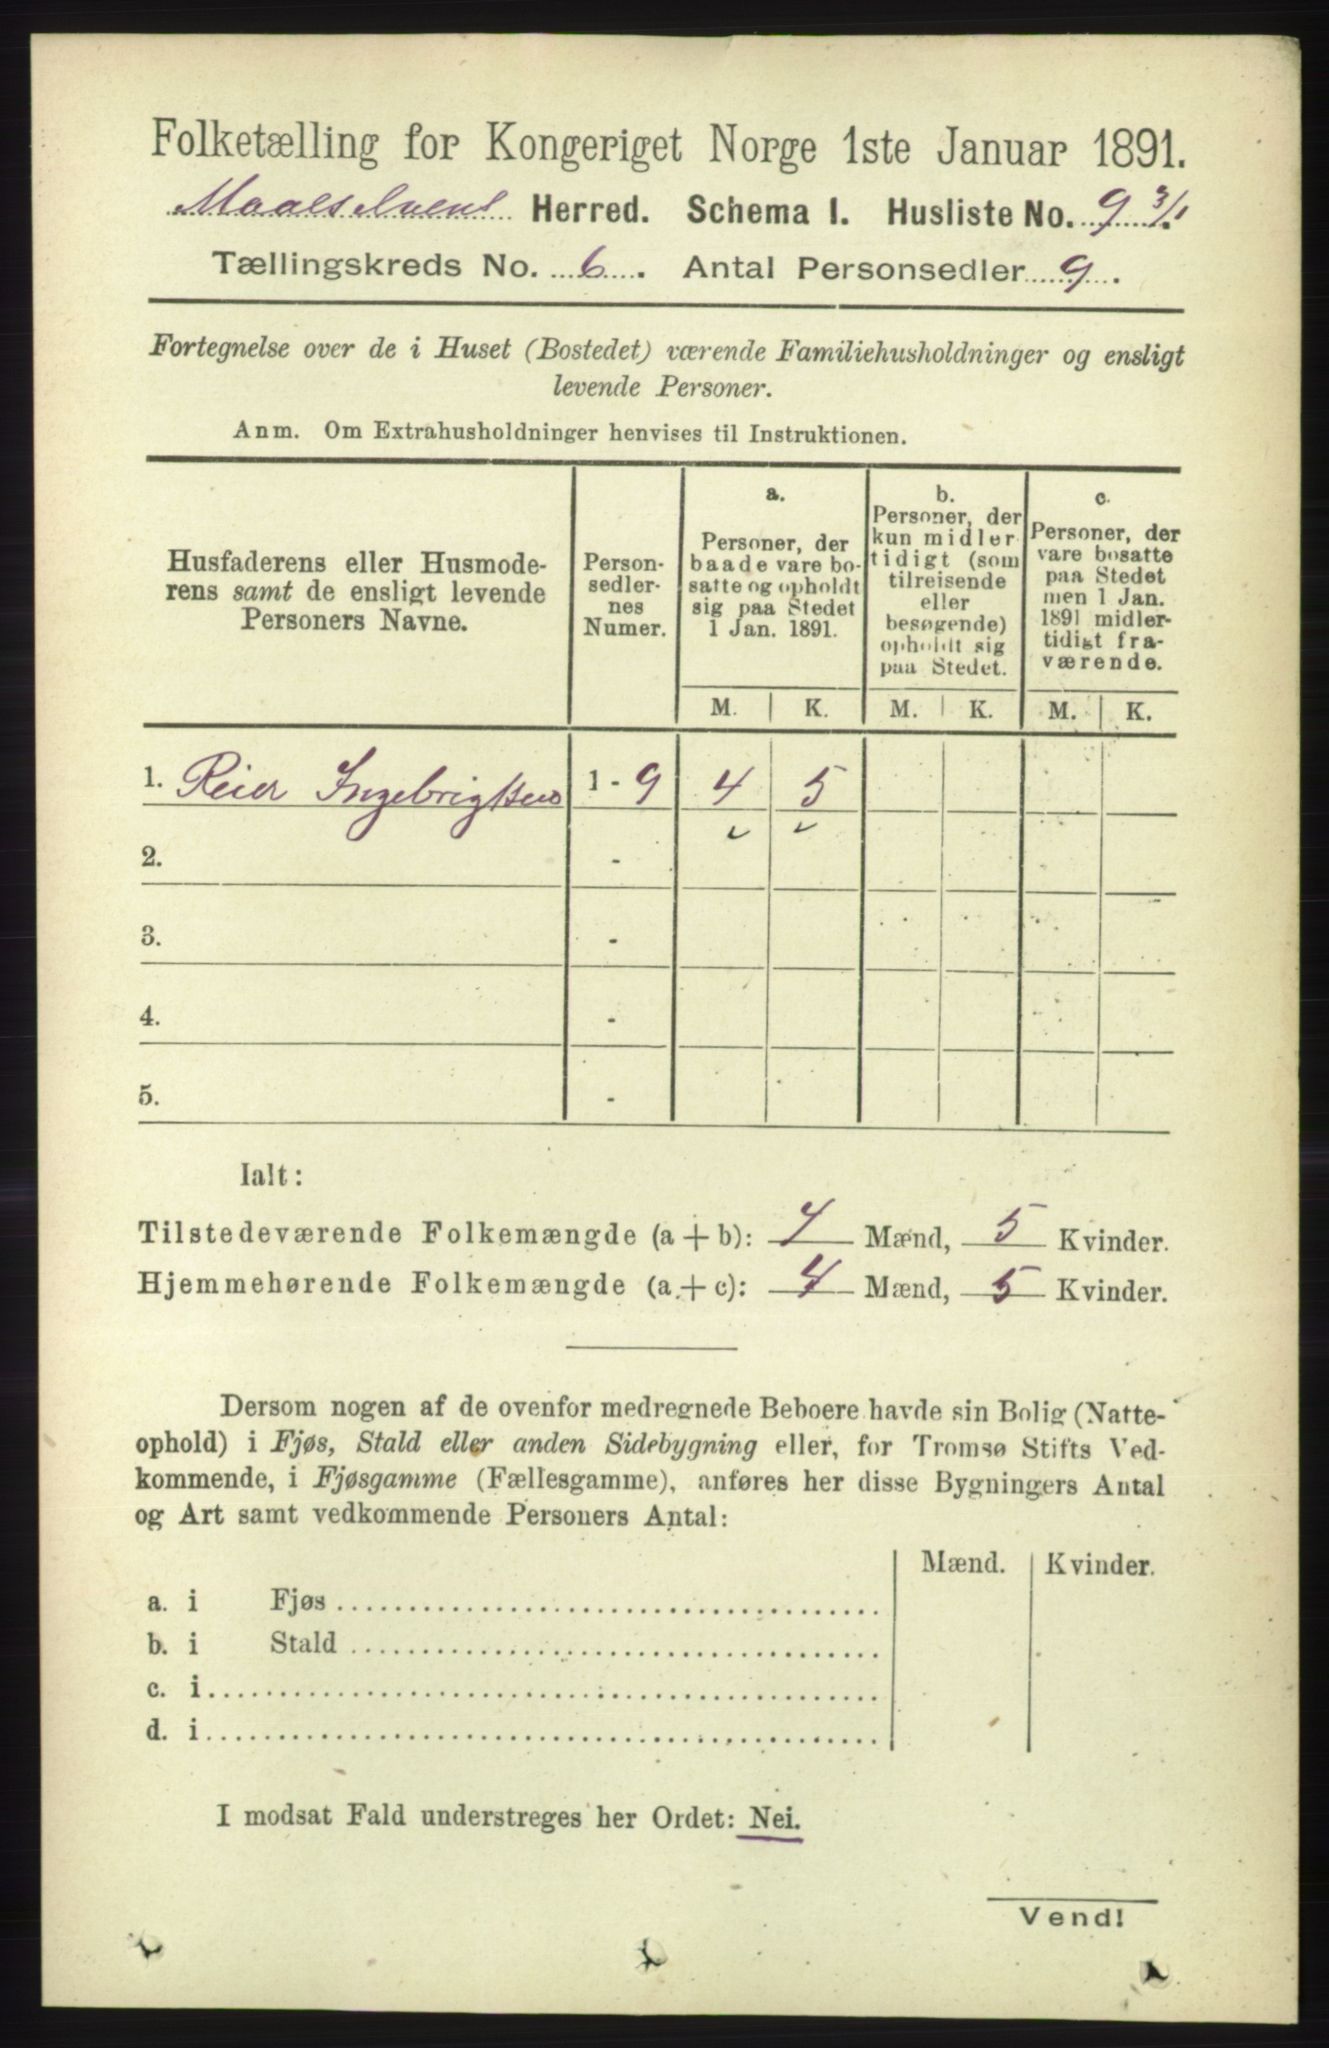 Folketælling for Kongeriget Norge 1ste Januar 1891.
Maalselvens Herred. Schema I. Husliste No. 9 3/1.
Tællingskreds No. 6. Antal Personsedler 9.
Fortegnelse over de i Huset (Bostedet) værende Familiehusholdninger og ensligt
levende Personer.
Anm. Om Extrahusholdninger henvises til Instruktionen.
Husfaderens eller Husmode-
rens samt de ensligt levende
Personers Navne.
Person-
sedler-
nes
Numer.
a.
Personer, der
baade vare bo-
satte og opholdt
sig paa Stedet
1 Jan. 1891.
b.
Personer, der
kun midler-
tidigt (som
tilreisende
eller
besøgende)
opholdt sig
paa Stedet.
c.
Personer, der
vare bosatte
paa Stedet
men 1 Jan.
1891 midler-
tidigt fra-
værende.
M. K. M. K. M. K.
1. Reier Ingebrigtsen 1 - 9 4 5
2. -
3. -
4. -
5. -
Ialt:
Tilstedeværende Folkemængde (a + b): 4 Mænd, 5 Kvinder.
Hjemmehørende Folkemængde (a + c): 4 Mænd, 5 Kvinder.
Dersom nogen af de ovenfor medregnede Beboere havde sin Bolig (Natte-
ophold) i Fjøs, Stald eller anden Sidebygning eller, for Tromsø Stifts Ved-
kommende, i Fjøsgamme (Fællesgamme), anføres her disse Bygningers Antal
og Art samt vedkommende Personers Antal:
Mænd. Kvinder.
a. i Fjøs
b. i Stald
c. i
d. i
I modsat Fald understreges her Ordet: Nei.
Vend!